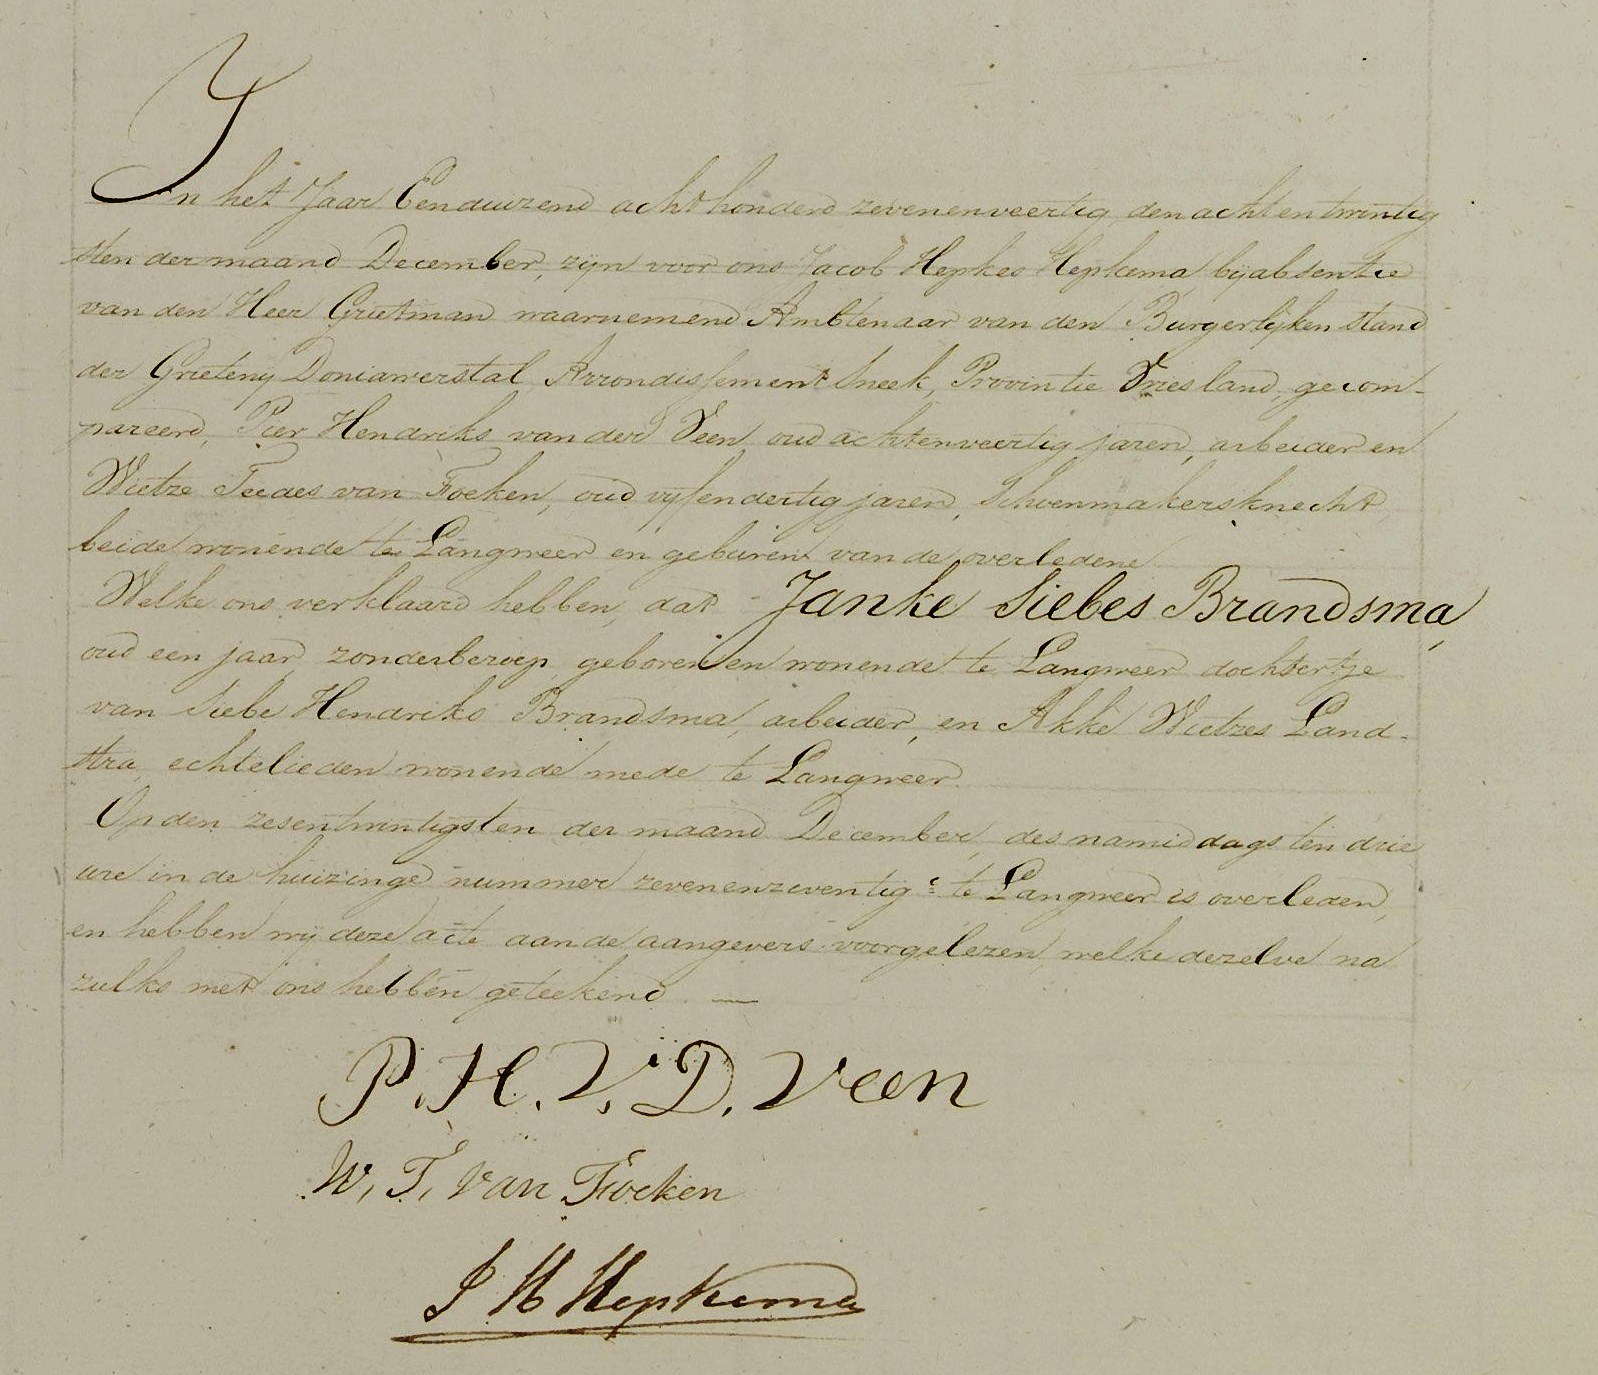 In het Jaar Eenduizend achthonderd zevenenveertig, den achtentwintig
sten der maand December, zijn voor ons Jacob Hepkes Hepkema, bij absentie
van den Heer Grietman waarnemend Ambtenaar van den Burgerlijken stand
der Grietenij Doniawerstal, Arrondissement Sneek, Provintie Vriesland, gecom-
pareerd, Pier Hendriks van der Veen, oud achtenveertig jaren, arbeider en
Wietze Teedes van Focken, oud vijfendertig jaren, Schoenmakersknecht,
beide wonende te Langweer en geburen van de overledene
Welke ons verklaard hebben, dat Janke Siebes Brandsma,
oud een jaar, zonder beroep, geboren en wonende te Langweer dochtertje
van Siebe Hendriks Brandsma, arbeider, en Akke Wietzes Land-
stra, echtelieden wonende mede te Langweer.
Op den zesentwintigsten der maand December, des namiddags ten drie
ure in de huizinge nummer zevenenzeventig te Langweer is overleden,
en hebben wij deze acte aan de aangevers voorgelezen, welke dezelve na
zulks met ons hebben geteekend. —
P. H. V. D. Veen
W. T. van Focken
J H Hepkema